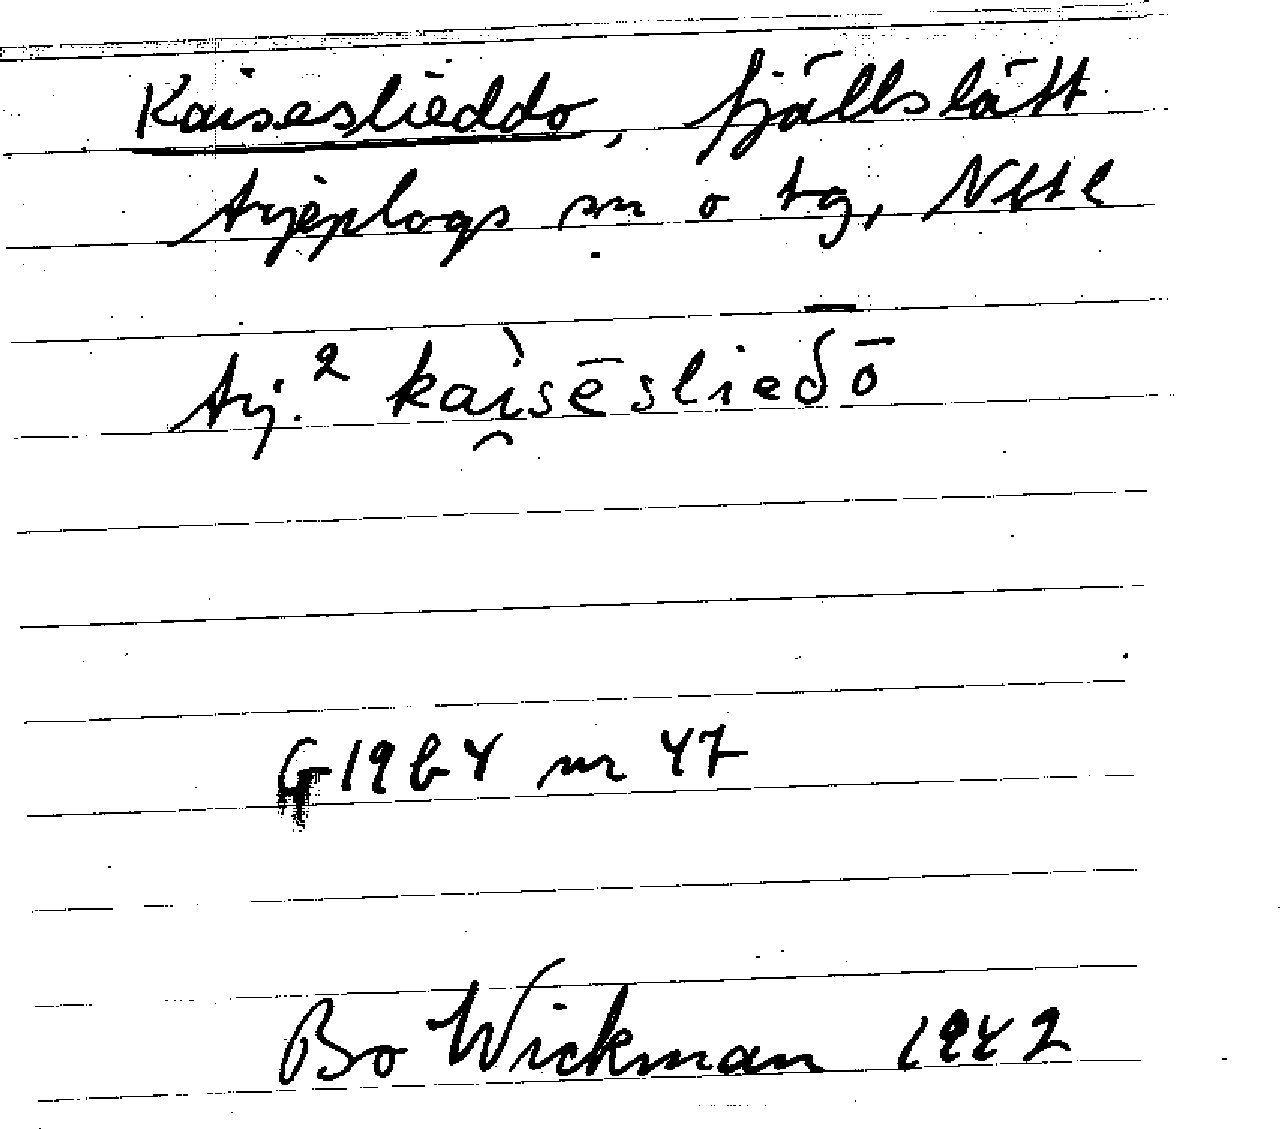 Kaiseslieddo, fjällslätt
Arjeplogs sn o tg, Nbtl
Arj.² kaì̯sēsliedō
G1964 nr 47
Bo Wickman 1942